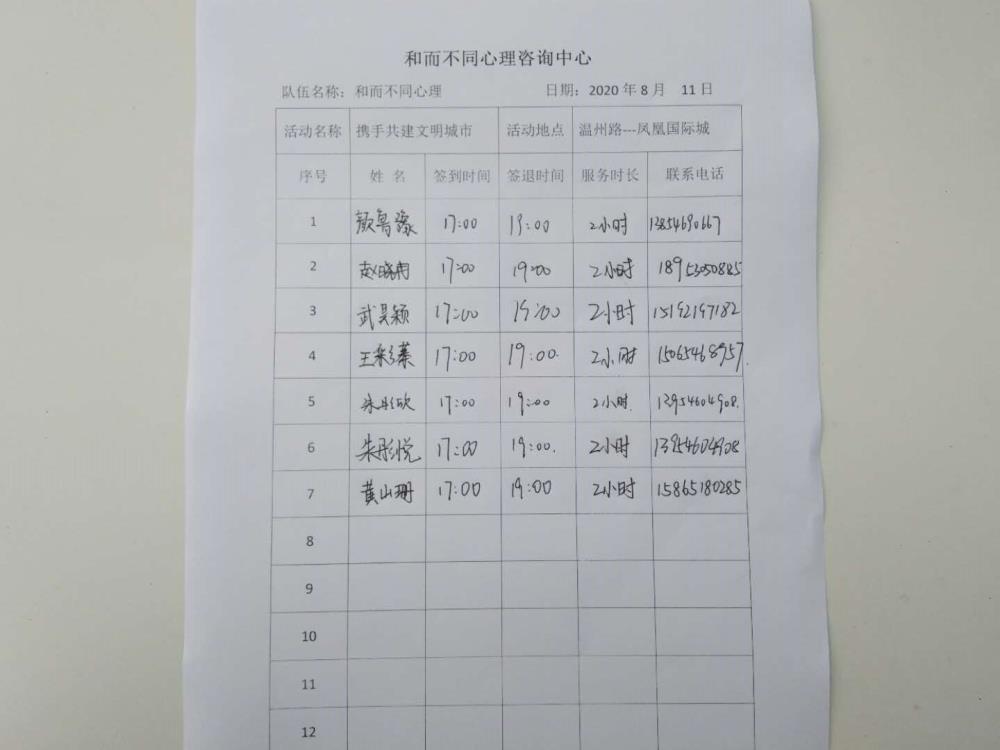 和而不同心理咨询中心
队伍名称：和而不同心理 日期：2020 年 8 月 11 日
活动名称 携手共建文明城市 活动地点 温州路---凤凰国际城
序号 姓 名 签到时间 签退时间 服务时长 联系电话
1 颜鲁豫 17:00 19:00 2小时 13854690667
2 赵晓雨 17:00 19:00 2小时 18953050885
3 武昊颖 17:00 19:00 2小时 15192197182
4 王彩蓁 17:00 19:00. 2小时 15065468957.
5 朱彤欣 17:00 19:00 2小时. 13954604908.
6 朱彤悦 17:00 19:00. 2小时 13954604908
7 黄山珊 17:00 19:00 2小时 15865180285
8
9
10
11
12